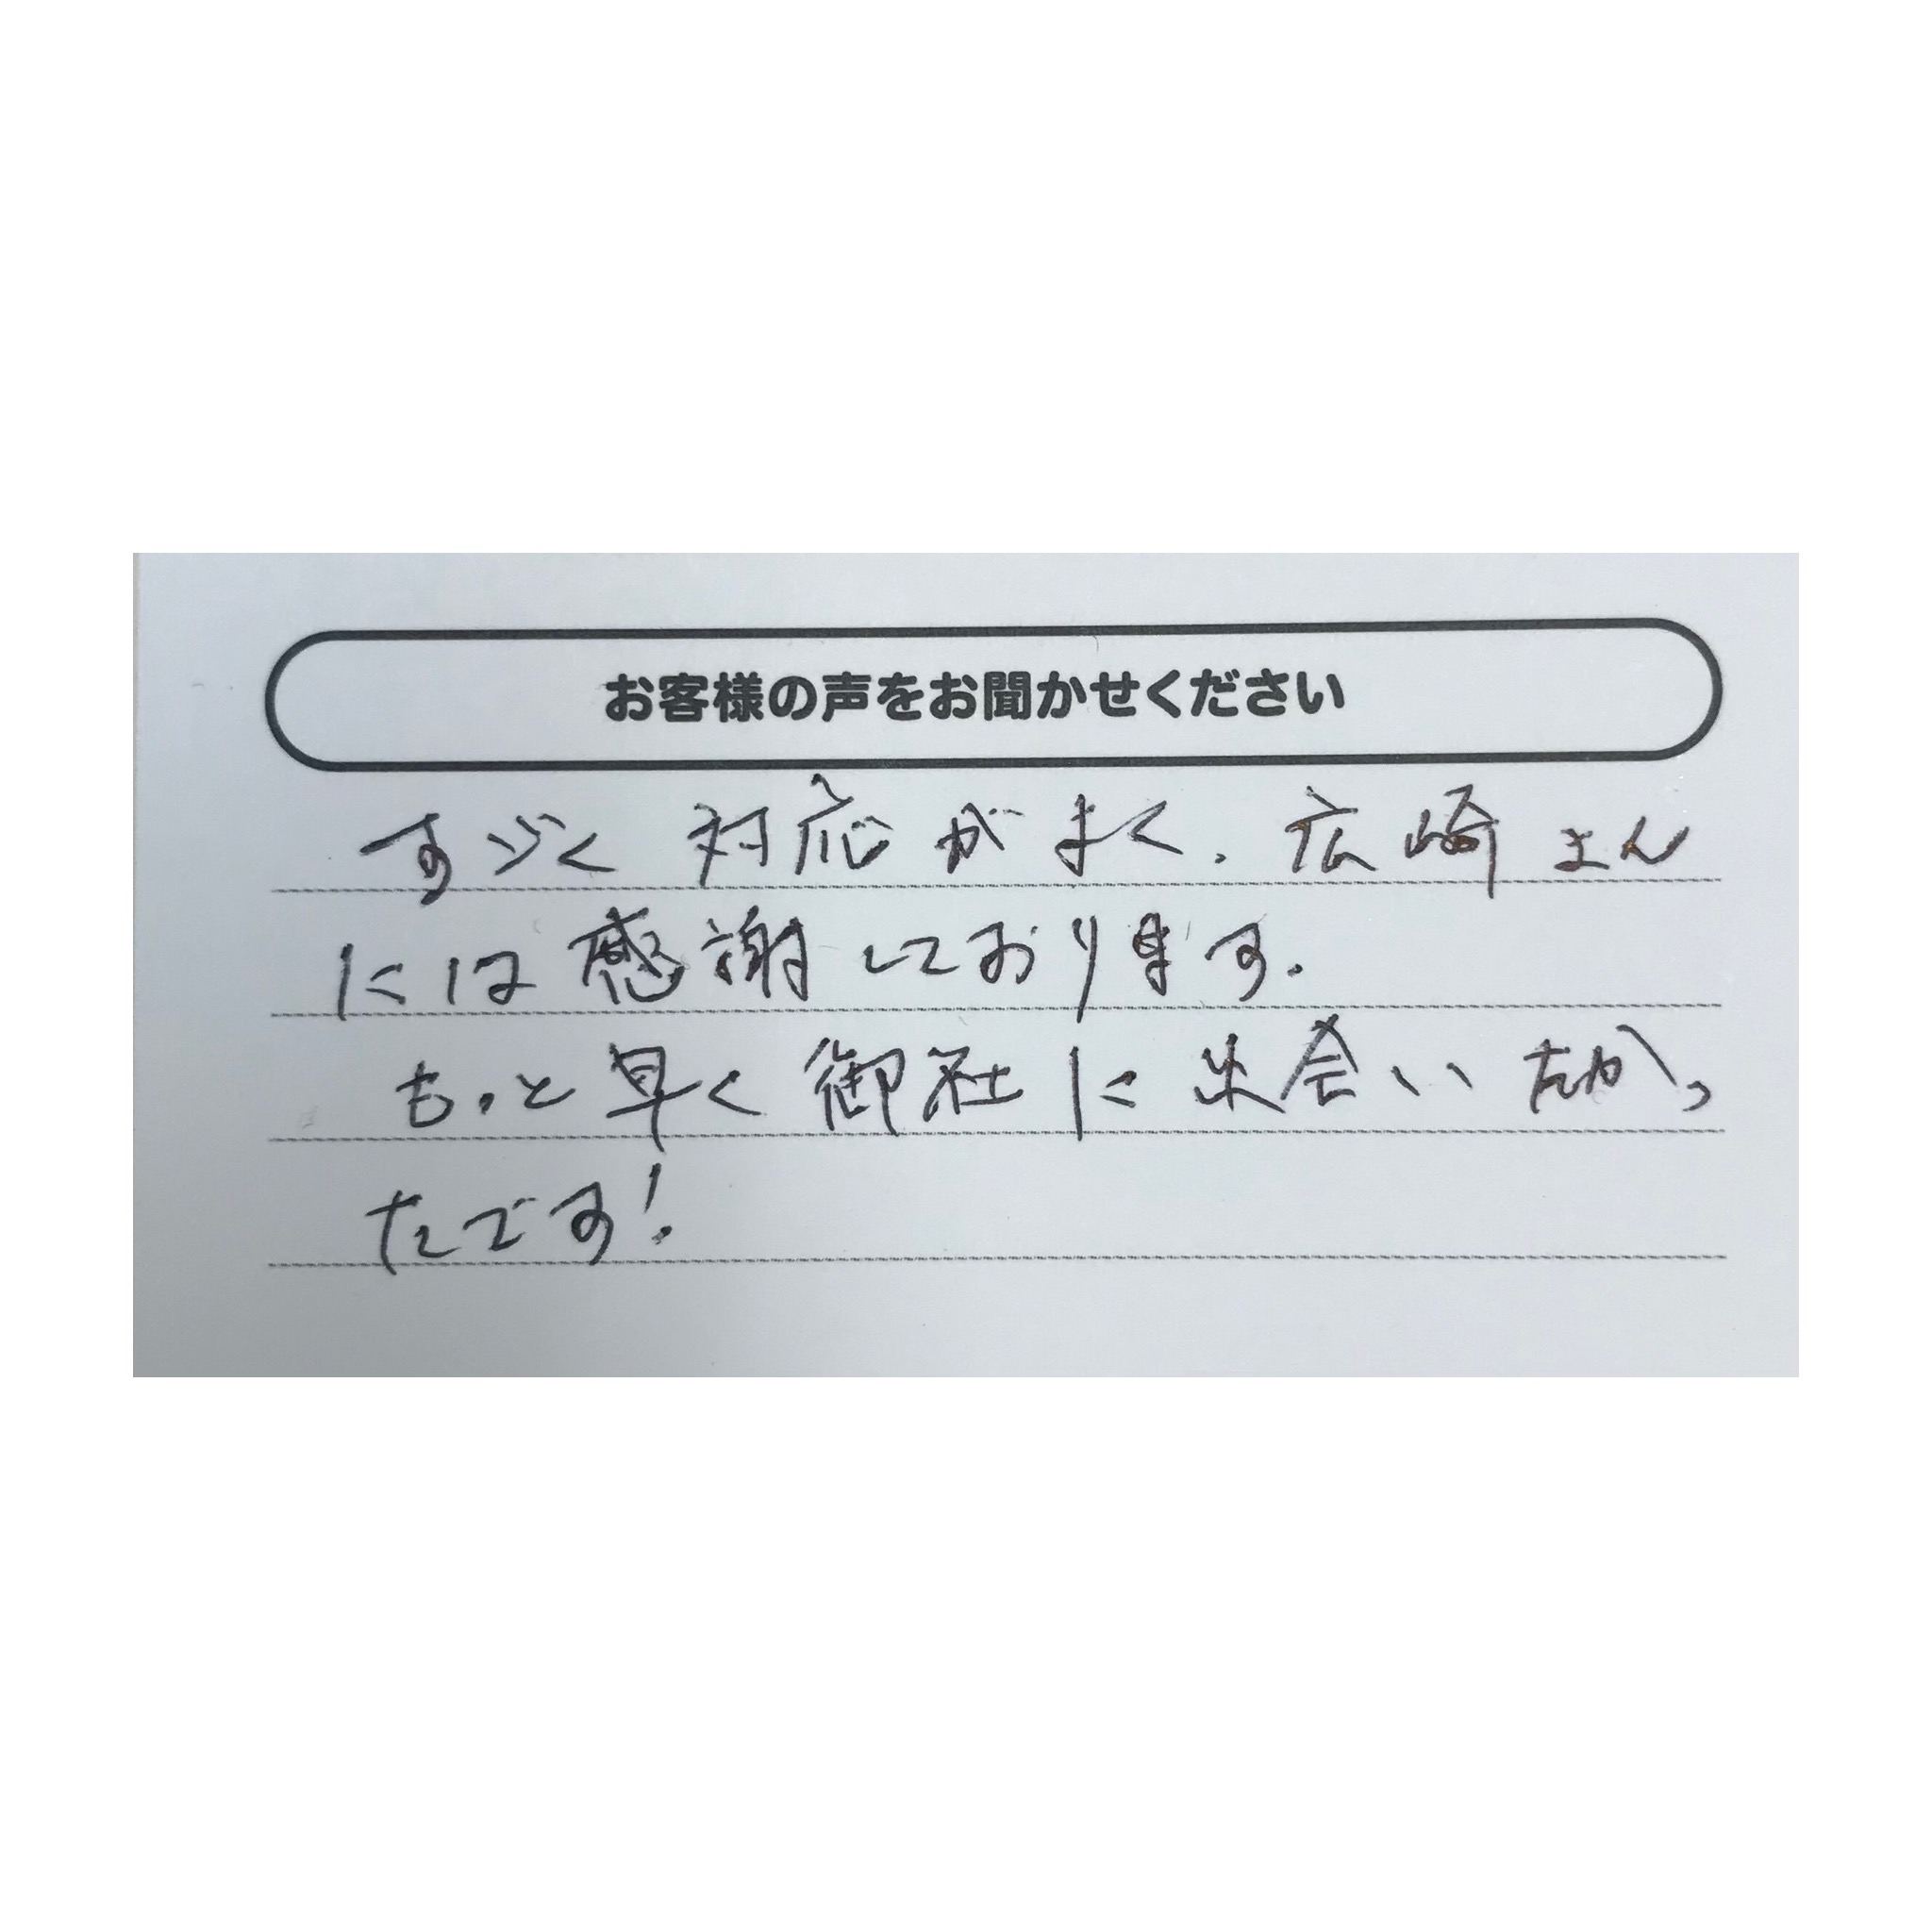 お客様の声をお聞かせください
すごく対応がよく、広崎さん
には感謝しております。
もっと早く御社に出会いたかっ
たです!